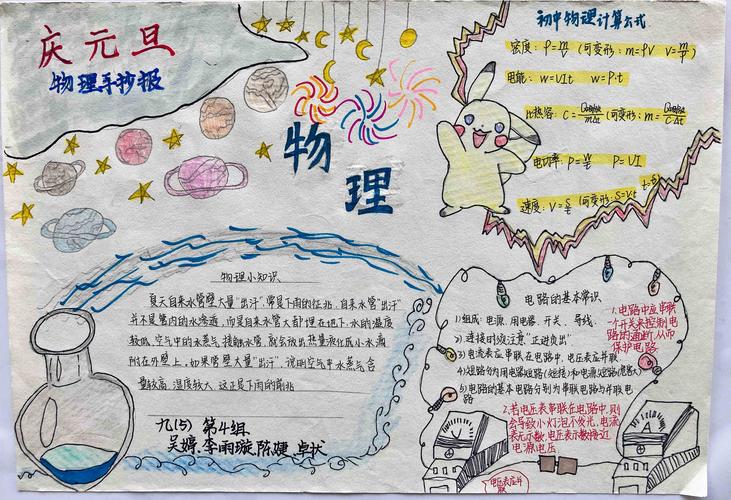 庆元旦
物理手抄报
物
理
初中物理计算公式
密度: ρ=m/V (可变形: m=ρV V=m/ρ)
电能: W=UIt W=P·t
比热容: C=Q吸/mΔt (可变形: m=Q吸/CΔt
电功率: P=W/t P=UI
速度: V=S/t (可变形: S=Vt
物理小知识
夏天自来水管壁大量"出汗",常是下雨的征兆,自来水管"出汗"
并不是管内的水渗透,而是自来水管大都埋在地下,水的温度
较低,空气中的水蒸气接触水管,就会放出热量液化成小水滴
附在外壁上,如果管壁大量"出汗",说明空气中水蒸气含
量较高,湿度较大,这正是下雨的前兆
九(5) 第4组
吴婷、李雨璇、陈婕、卓
电路的基本常识
1)组成:电源、用电器、开关、导线
2)连接时须注意"正进负出"
3)电流表应串联在电路中,电压表应并联
4)短路分为用电器短路(短接)和电源短路(危害大)
5)电路的基本电路分别为串联电路与并联电
路
1.电路中应串联
一个开关来控制电
路的通断,从而
保护电路
2.若电压表串联在电路中,则
会导致小灯泡不发光,电流
表无示数,电压表示数接近
电源电压
A
V
电压表应并
联